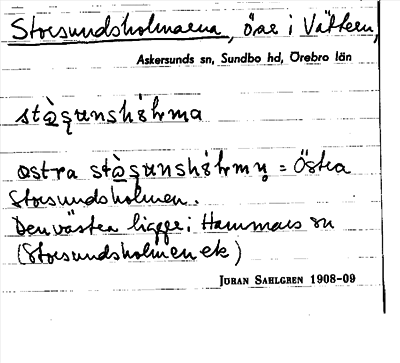 Storsundsholmarna, öar i Vättern,
Askersunds sn, Sundbo hd, Örebro län
Östra
Storsundsholmen.
Den västra ligger i Hammars sn
(Storsundsholmen etc)
JÖRAN SAHLGREN 1908-09